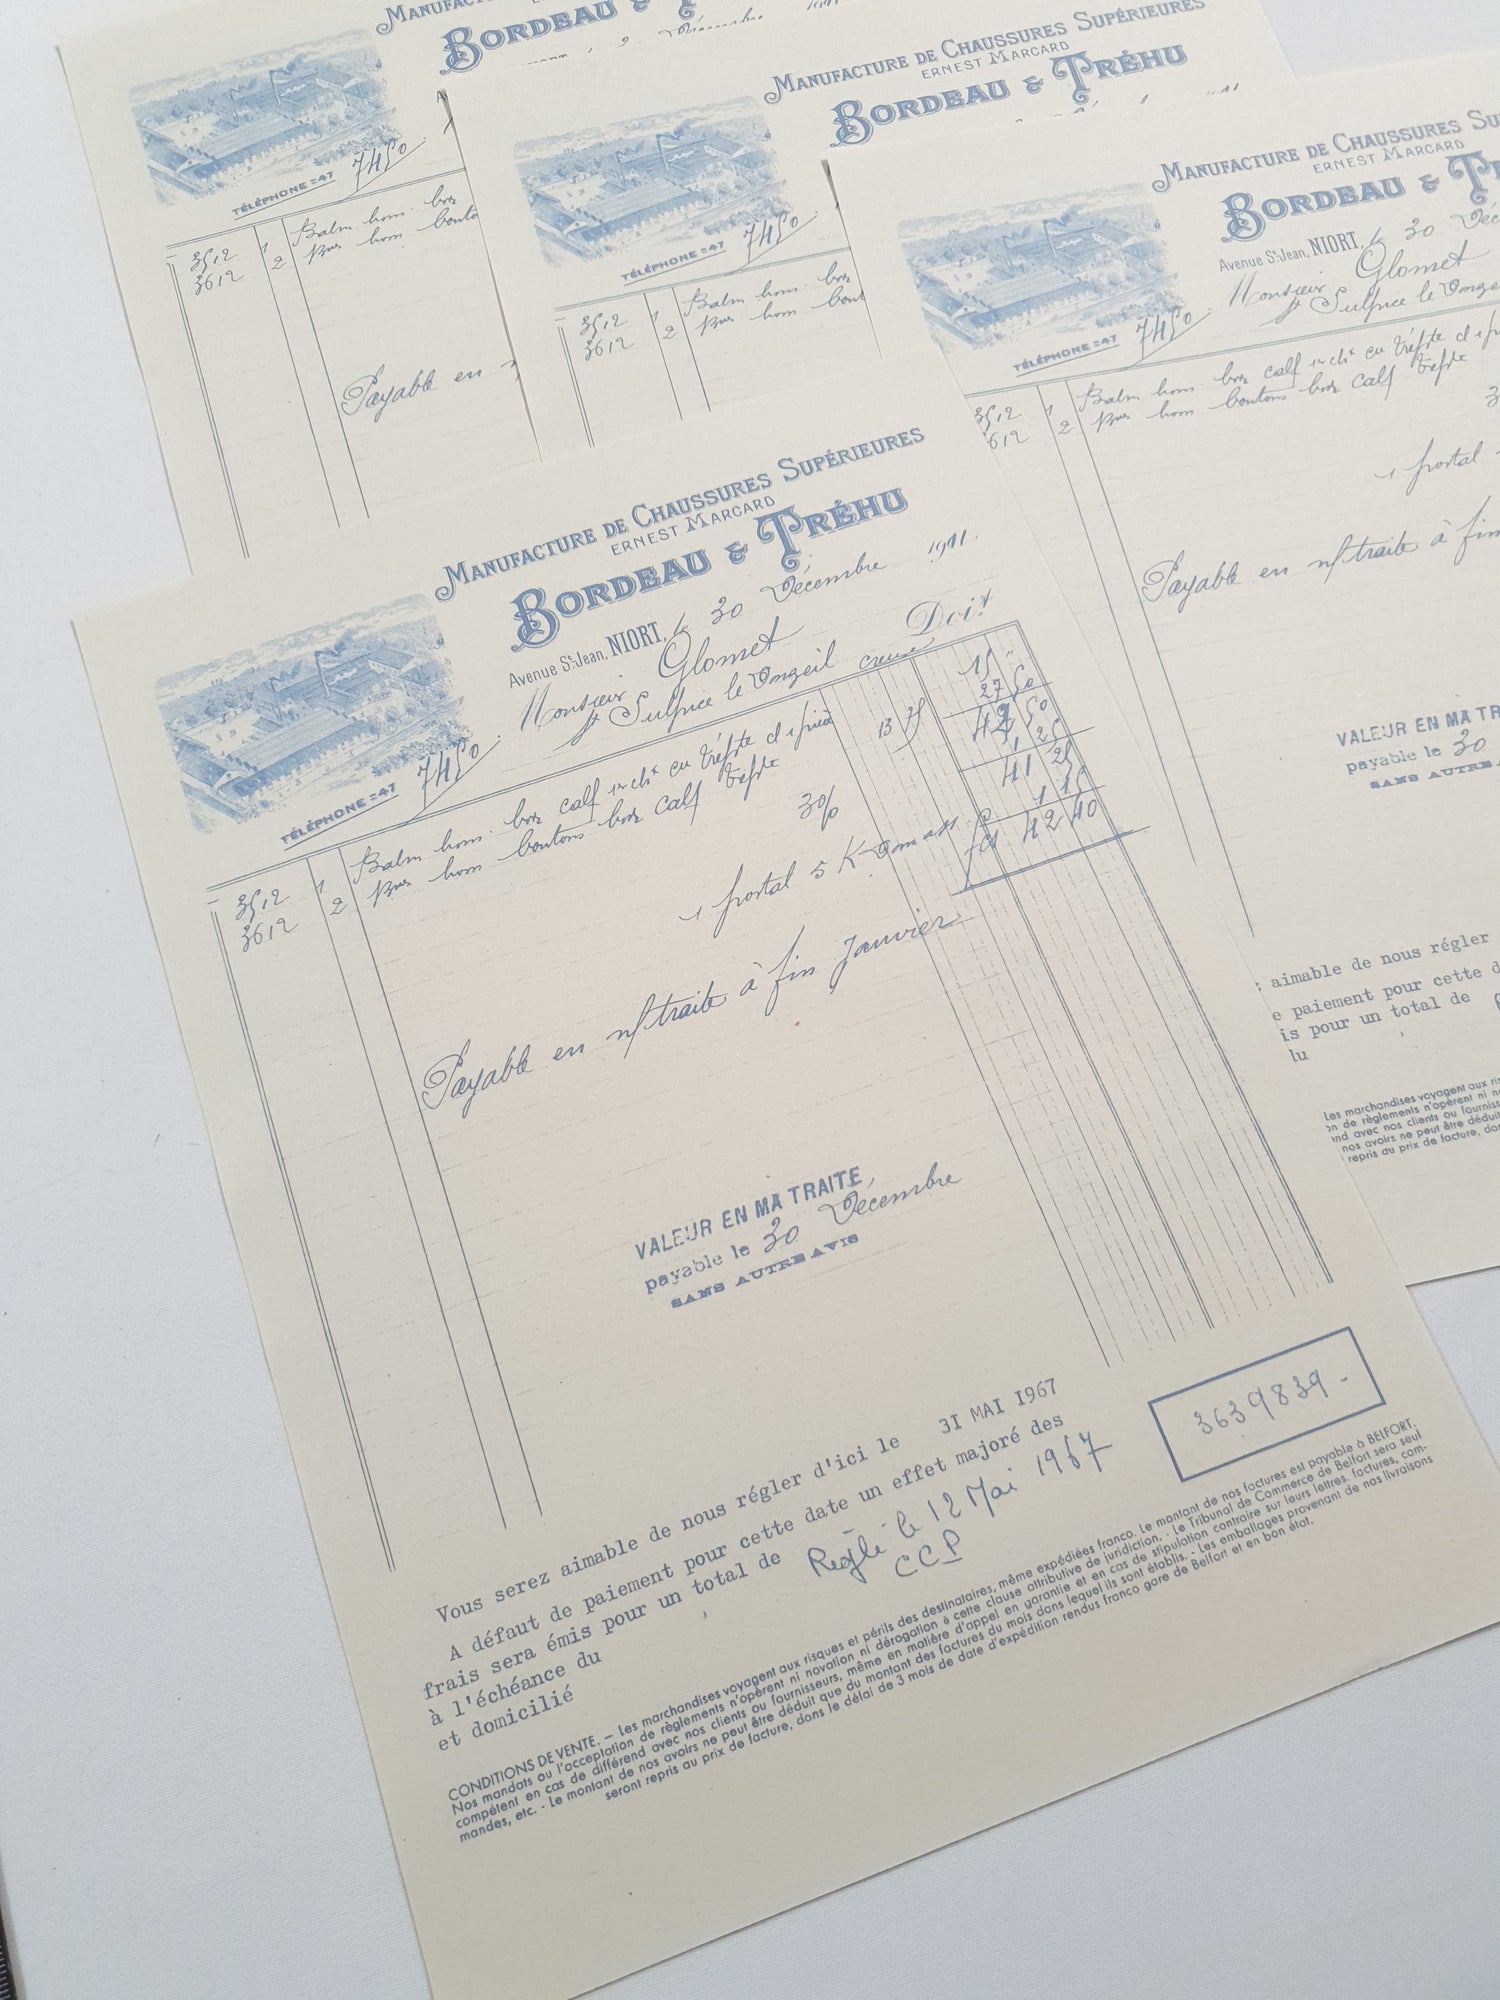 MANUFACTURE DE CHAUSSURES SUPÉRIEURES
ERNEST MARCARD
BORDEAU & TRÉHU
Avenue St Jean, NIORT, le 30 Décembre 1911.
Monsieur Glomet
St Sulpice le Donzeil creuse Doit
TÉLÉPHONE :: 47
7450
3512 1 Balm hom. box calf en tréfite 15 "
3612 2 hom boutons box calf 13 75 27 50
42 50
3% 1 25
41 25
1 postal 5 K 1 15
42 40
Payable en n/traite à fin Janvier
VALEUR EN MA TRAITE,
payable le 30 Décembre
SANS AUTRE AVIS
Vous serez aimable de nous régler d'ici le 31 MAI 1967
A défaut de paiement pour cette date un effet majoré des
frais sera émis pour un total de
à l'échéance du
et domicilié
Réglé le 12 Mai 1967
CCP
3639839 -
CONDITIONS DE VENTE. — Les marchandises voyagent aux risques et périls des destinataires, même expédiées franco. Le montant de nos factures est payable à BELFORT.
Nos mandats ou l'acceptation de règlements n'opèrent ni novation ni dérogation à cette clause attributive de juridiction. - Le Tribunal de Commerce de Belfort sera seul
compétent en cas de différend avec nos clients ou fournisseurs, même en matière d'appel en garantie et en cas de stipulation contraire sur leurs lettres, factures, com-
mandes, etc. - Le montant de nos avoirs ne peut être déduit que du montant des factures du mois dans lequel ils sont établis. - Les emballages provenant de nos livraisons
seront repris au prix de facture, dans le délai de 3 mois de date d'expédition rendus franco gare de Belfort et en bon état.
MANUFACTURE
BORDEAU &
TÉLÉPHONE :: 47
7450
3512 1 Balm hom. box
3612 2 hom bouto
Payable en
MANUFACTURE DE CHAUSSURES SUPÉRIEURES
ERNEST MARCARD
BORDEAU & TRÉHU
TÉLÉPHONE :: 47
7450
3512 1 Balm hom. box
3612 2 hom bout
MANUFACTURE DE CHAUSSURES SU
ERNEST MARCARD
BORDEAU & TR
Avenue St Jean, NIORT, le 30 Déc
Monsieur Glomet
St Sulpice le Donze
TÉLÉPHONE :: 47
7450
3512 1 Balm hom. box calf en tréfite
612 2 hom boutons box calf
1 postal
Payable en n/traite à fin
VALEUR EN MA TR
payable le 30
SANS AUTRE A
aimable de nous régler
e paiement pour cette d
is pour un total de
lu
Les marchandises voyagent aux ris
on de règlements n'opèrent ni no
nd avec nos clients ou fourniss
nos avoirs ne peut être déduit
repris au prix de facture, dan